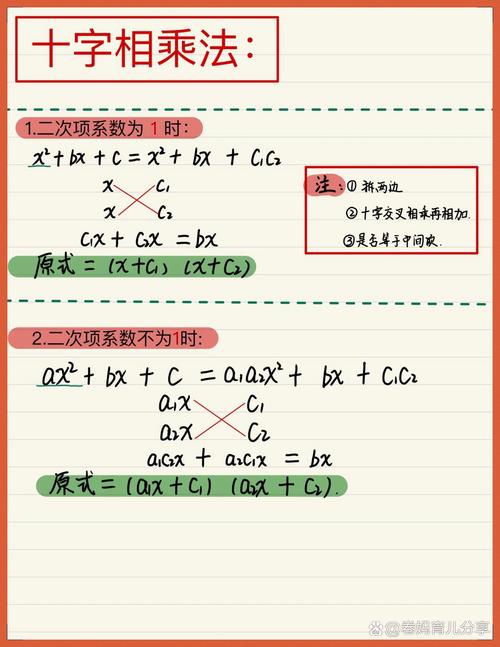 十字相乘法：
1.二次项系数为 1 时：
x²+bx+c=x²+ bx + C₁C₂
x C₁
x C₂
C₁x + C₂x = bx
原式 = (x+C₁) (x+C₂)
注：① 拆两边
② 十字交叉相乘再相加.
③是否等于中间项.
2.二次项系数不为1时:
ax²+ bx + C = a₁a₂x²+ bx + C₁C₂
a₁x C₁
a₂x C₂
a₁C₂x + a₂C₁x = bx
原式 = (a₁x + C₁) (a₂x + C₂).
@卷妈育儿分享